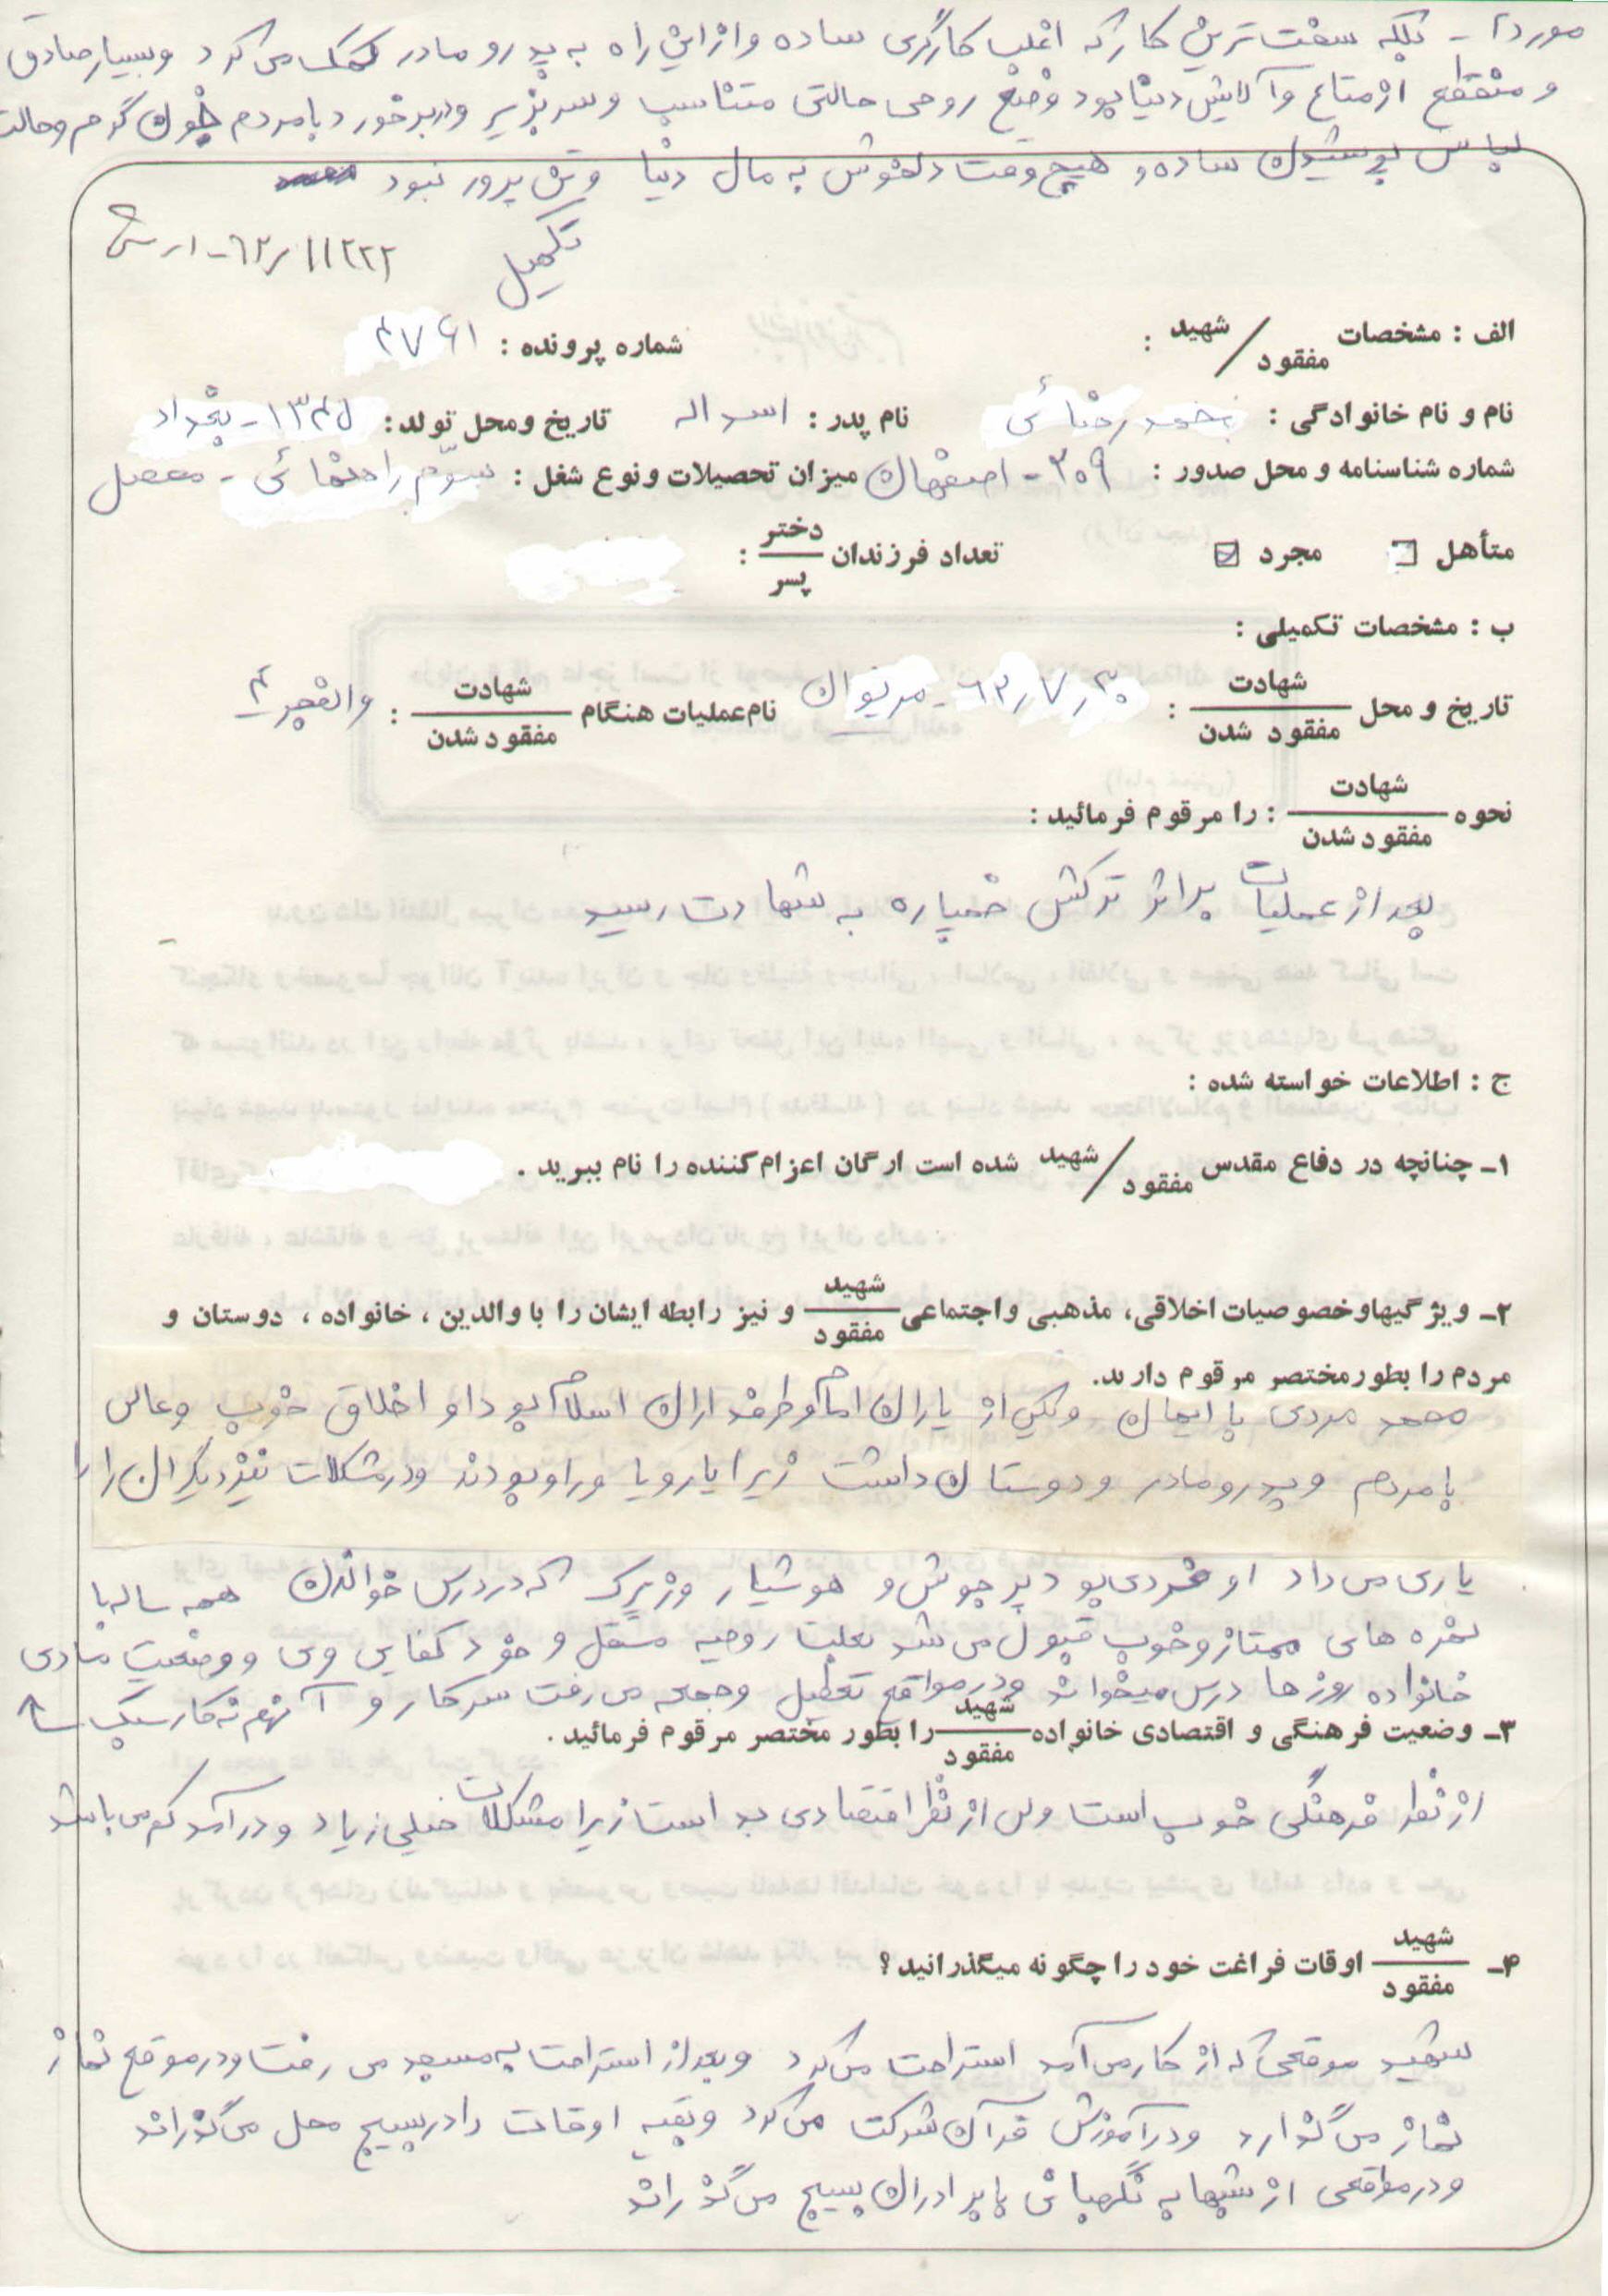 مورد ۲ - بلکه سخت ترین کار که اغلب کارگری ساده و از این راه به پدر و مادر کمک می کرد و بسیار صادق
و منقطع از متاع و آلایش دنیا بود وضع روحی حالتی متناسب و سربزیر و در برخورد با مردم خون گرم و حالت
لباس پوشیدن ساده و هیچ وقت دلخوش به مال دنیا و تن پرور نبود
تکمیل
۶۲/۱۱۲۲۲-ار
الف : مشخصات شهید / مفقود :
شماره پرونده : ۴۷۶۱
نام و نام خانوادگی : محمد رضائی نام پدر : اسداله تاریخ و محل تولد : ۱۳۴۵ - بغداد
شماره شناسنامه و محل صدور : ۳۰۹ - اصفهان میزان تحصیلات و نوع شغل : سوّم راهنمائی - محصل
متأهل ☐ مجرد ☑ تعداد فرزندان دختر / پسر :
ب : مشخصات تکمیلی :
تاریخ و محل شهادت / مفقود شدن : ۶۲/۷/۳۰ - مریوان نام عملیات هنگام شهادت / مفقود شدن : والفجر ۴
نحوه شهادت / مفقود شدن : را مرقوم فرمائید :
بعد از عملیات بر اثر ترکش خمپاره به شهادت رسید
ج : اطلاعات خواسته شده :
۱- چنانچه در دفاع مقدس شهید / مفقود شده است ارگان اعزام کننده را نام ببرید .
۲- ویژگیها و خصوصیات اخلاقی، مذهبی و اجتماعی شهید / مفقود و نیز رابطه ایشان را با والدین ، خانواده ، دوستان و
مردم را بطور مختصر مرقوم دارید.
محمد مردی با ایمان و یکی از یاران امام و طرفداران اسلام بود او اخلاق خوب و عالی
با مردم و پدر و مادر و دوستان داشت زیرا یار و یاور او بودند و در مشکلات نیز دیگران را
یاری می داد او فردی بود پر جوش و هوشیار و زیرک که در درس خواندن همه ساله با
نمره های ممتاز و خوب قبول می شد بعلت روحیه مستقل و خود کفایی وی و وضعیت مادی
خانواده روزها درس میخواند و در مواقع تعطیل و جمعه می رفت سر کار و آنهم نه کار سبک
۳- وضعیت فرهنگی و اقتصادی خانواده شهید / مفقود را بطور مختصر مرقوم فرمائید .
از نظر فرهنگی خوب است ولی از نظر اقتصادی بد است زیرا مشکلات خیلی زیاد و درآمد کم می باشد
۴- شهید / مفقود اوقات فراغت خود را چگونه میگذرانید ؟
شهید موقعی که از کار می آمد استراحت می کرد و بعد از استراحت به مسجد می رفت و در موقع نماز
نماز می گذارد و در آموزش قرآن شرکت می کرد و بقیه اوقات را در بسیج محل می گذراند
و در مواقعی از شبها به نگهبانی با برادران بسیج می گذراند